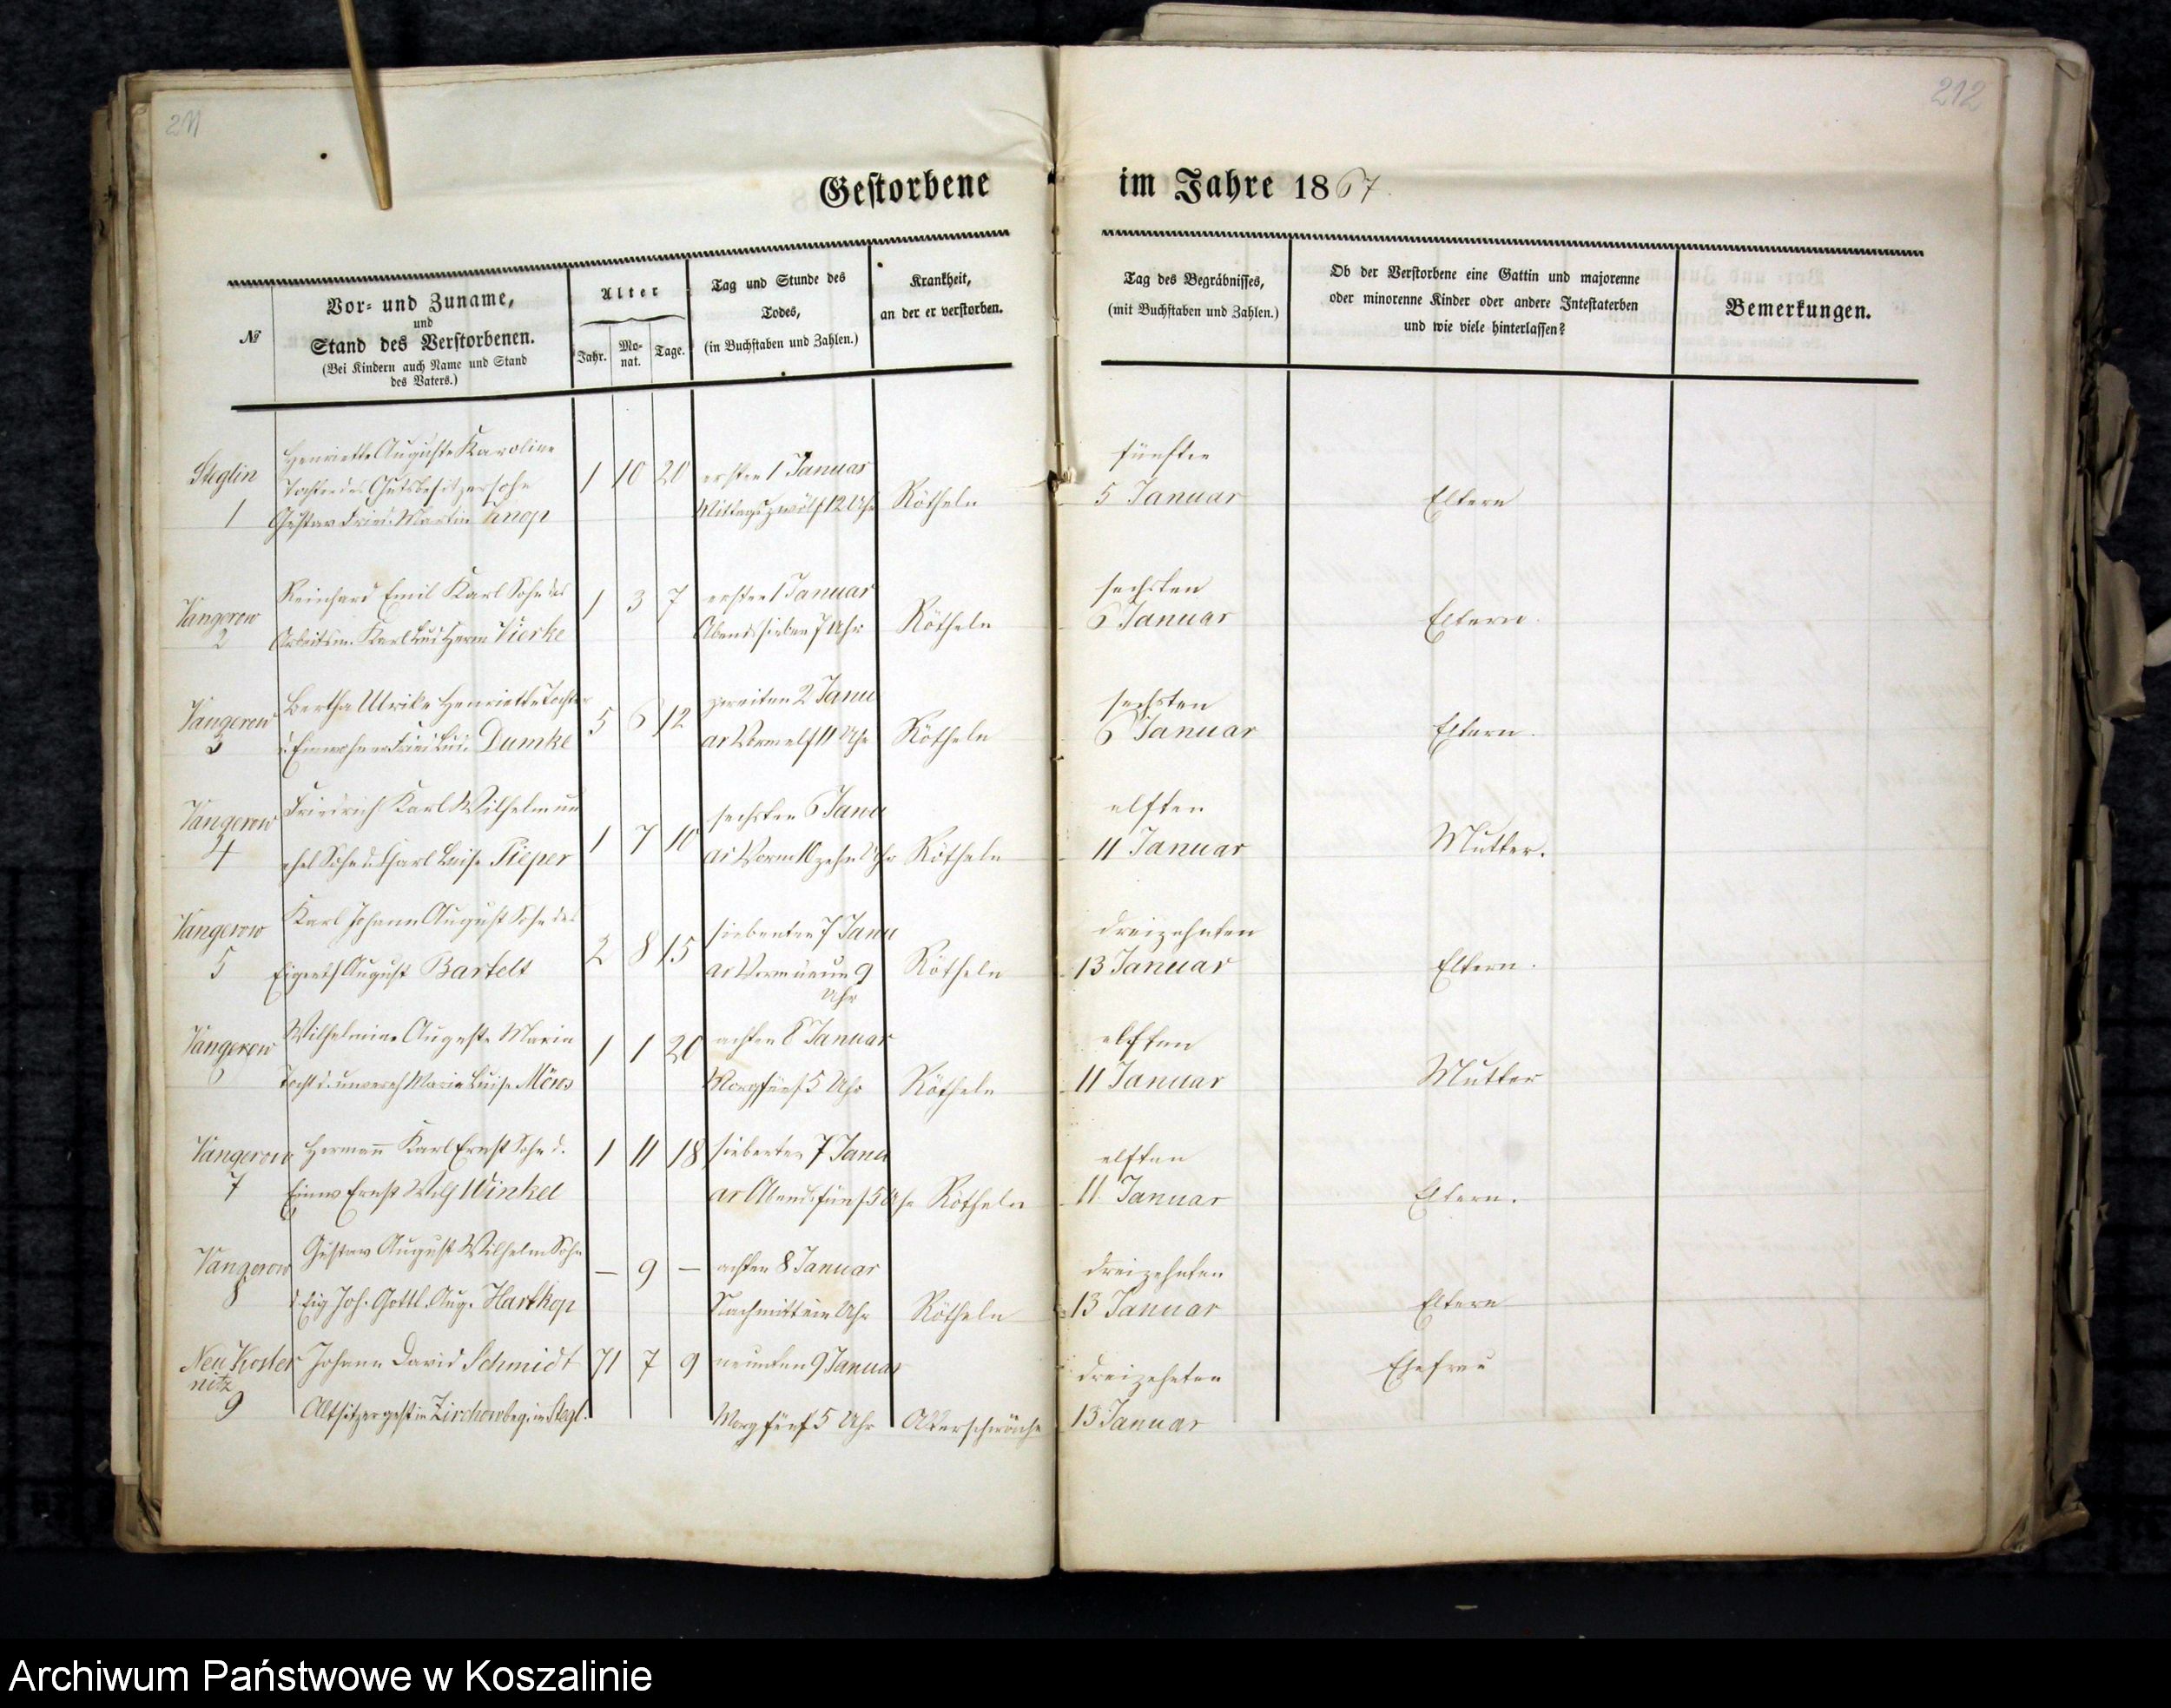 211
212
Gestorbene im Jahre 1867.
№
Vor- und Zuname,
und
Stand des Verstorbenen.
(Bei Kindern auch Name und Stand
des Vaters.)
Alter
Jahr.
Mo-
nat.
Tage.
Tag und Stunde des
Todes,
(in Buchstaben und Zahlen.)
Krankheit,
an der er verstorben.
Tag des Begräbnisses,
(mit Buchstaben und Zahlen.)
Ob der Verstorbene eine Gattin und majorenne
oder minorenne Kinder oder andere Intestaterben
und wie viele hinterlassen?
Bemerkungen.
Steglin
1
Henriette Auguste Karoline
Tochter des Gutsbesitzersohn
Gustav Fried. Martin Knop
1 10 20
ersten 1 Januar
Mittags zwölf 12 Uhr
Rötheln
fünften
5 Januar
Eltern
Vangerow
2
Reinhard Emil Karl Sohn des
Arbeitsm. Karl Lud Herm Vierke
1 3 7
ersten 1 Januar
Abends sieben 7 Uhr
Rötheln
sechsten
6 Januar
Eltern.
Vangerow
3
Bertha Ulrike Henriette Tochter
d. Einwohner Fried Lud. Dumke
5 6 12
zweiten 2 Janu
ar Vorm elf 11 Uhr
Rötheln
sechsten
6 Januar
Eltern.
Vangerow
4
Friedrich Karl Wilhelm un
ehel Sohn d. Charl Luise Pieper
1 7 10
sechsten 6 Janu
ar Vorm 10 zehn Uhr
Rötheln
elften
11 Januar
Mutter.
Vangerow
5
Karl Johann August Sohn des
Eigenth August Bartelt
2 8 15
siebenten 7 Janu
ar Vorm neun 9
Uhr
Rötheln
dreizehnten
13 Januar
Eltern.
Vangerow
6
Wilhelmine Auguste Marie
Tocht d. unvereh Marie Luise
1 1 20
achten 8 Januar
Morg fünf 5 Uhr
Rötheln
elften
11 Januar
Mutter
Vangerow
7
Hermann Karl Ernst Sohn d.
Einw Ernst Wilh Winkel
1 11 18
siebenten 7 Janu
ar Abends fünf 5 Uhr
Rötheln
elften
11. Januar
Eltern.
Vangerow
8
Gustav August Wilhelm Sohn
d. Eig Joh. Gottl. Aug. Hartkop
— 9 —
achten 8 Januar
Nachmitt ein Uhr
Rötheln
dreizehnten
13 Januar
Eltern
Neu Koster
nitz
9
Johann David Schmidt
Altsitzer gest in Zirchow beg. in Stegl.
71 7 9
neunten 9 Januar
Morg fünf 5 Uhr
Altersschwäche
dreizehnten
13 Januar
Ehefrau
Archiwum Państwowe w Koszalinie